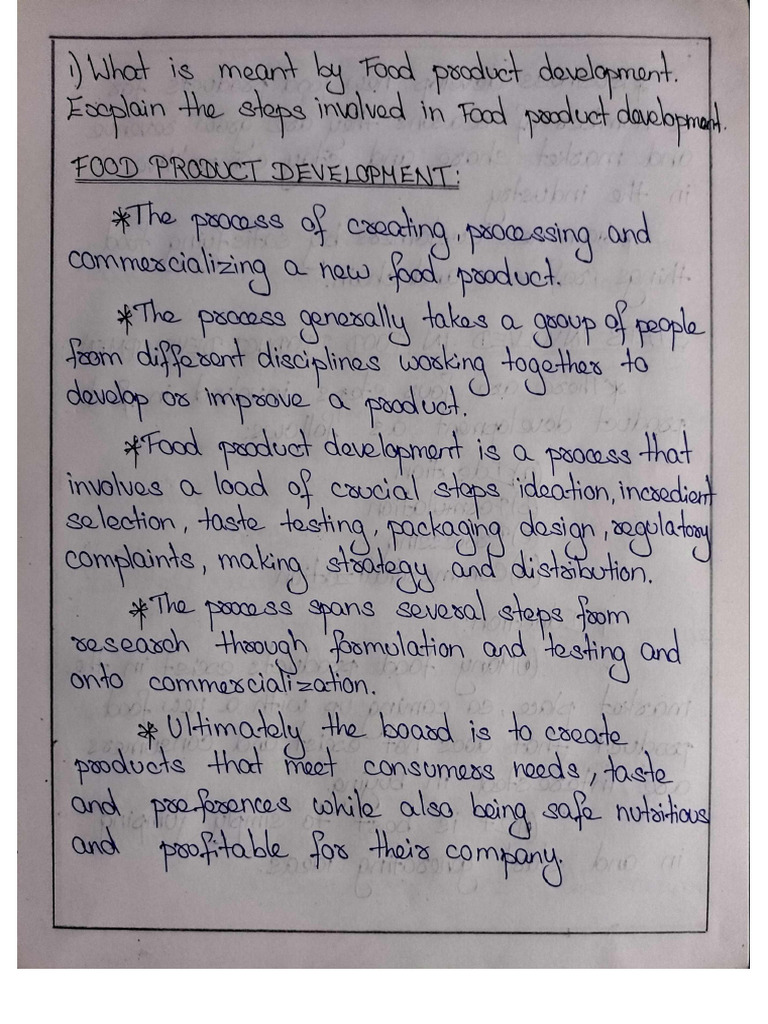 1) What is meant by Food product development.
Explain the steps involved in Food product development.
FOOD PRODUCT DEVELOPMENT:
*The process of creating, processing and
commercializing a new food product.
*The process generally takes a group of people
from different disciplines working together to
develop or improve a product.
*Food product development is a process that
involves a load of crucial steps ideation, incredient
selection, taste testing, packaging design, regulatory
complaints, making strategy and distribution.
*The process spans several steps from
research through formulation and testing and
onto commercialization.
* Ultimately the board is to create
products that meet consumers needs, taste
and preferences while also being safe nutritious
and profitable for their company.